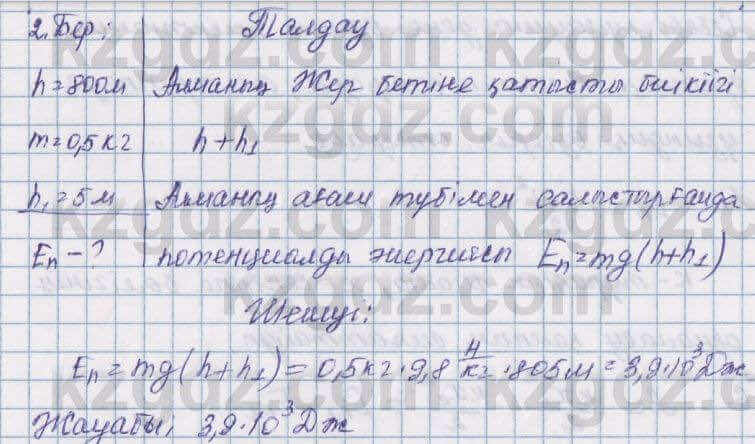 2. Бер: Талдау
h = 800м Алманың Жер бетіне қатысты биіктігі
m = 0,5 кг h + h₁
h₁ = 5 м Алманың ағаш түбімен салыстырғанда
Eₙ - ? потенциалды энергиясы Eₙ = mg(h+h₁)
Шешуі:
Eₙ = mg(h + h₁) = 0,5кг · 9,8 Н/кг · 805м = 3,9·10³ Дж
Жауабы: 3,9·10³ Дж
kzgdz.com